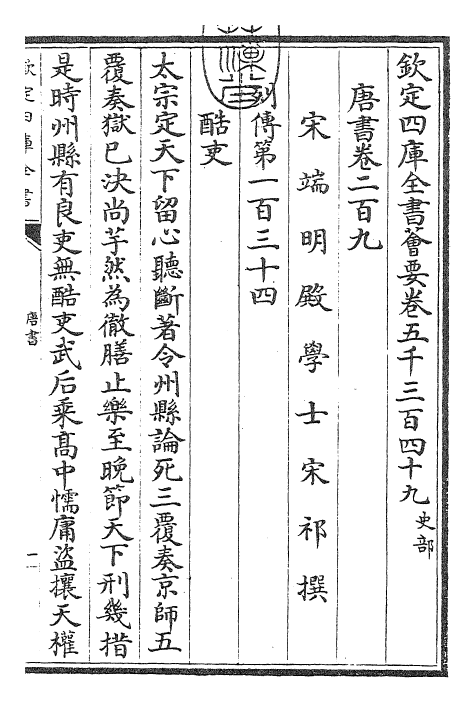 欽定四庫全書薈要卷五千三百四十九 史部
唐書卷二百九
宋端明殿學士宋祁撰
列傳第一百三十四
酷吏
太宗定天下留心聽斷著令州縣論死三覆奏京師五
覆奏獄已決尚芋然為徹膳止樂至晚節天下刑幾措
是時州縣有良吏無酷吏武后乘高中懦庸盜攘天權
欽定四庫全書
唐書
一